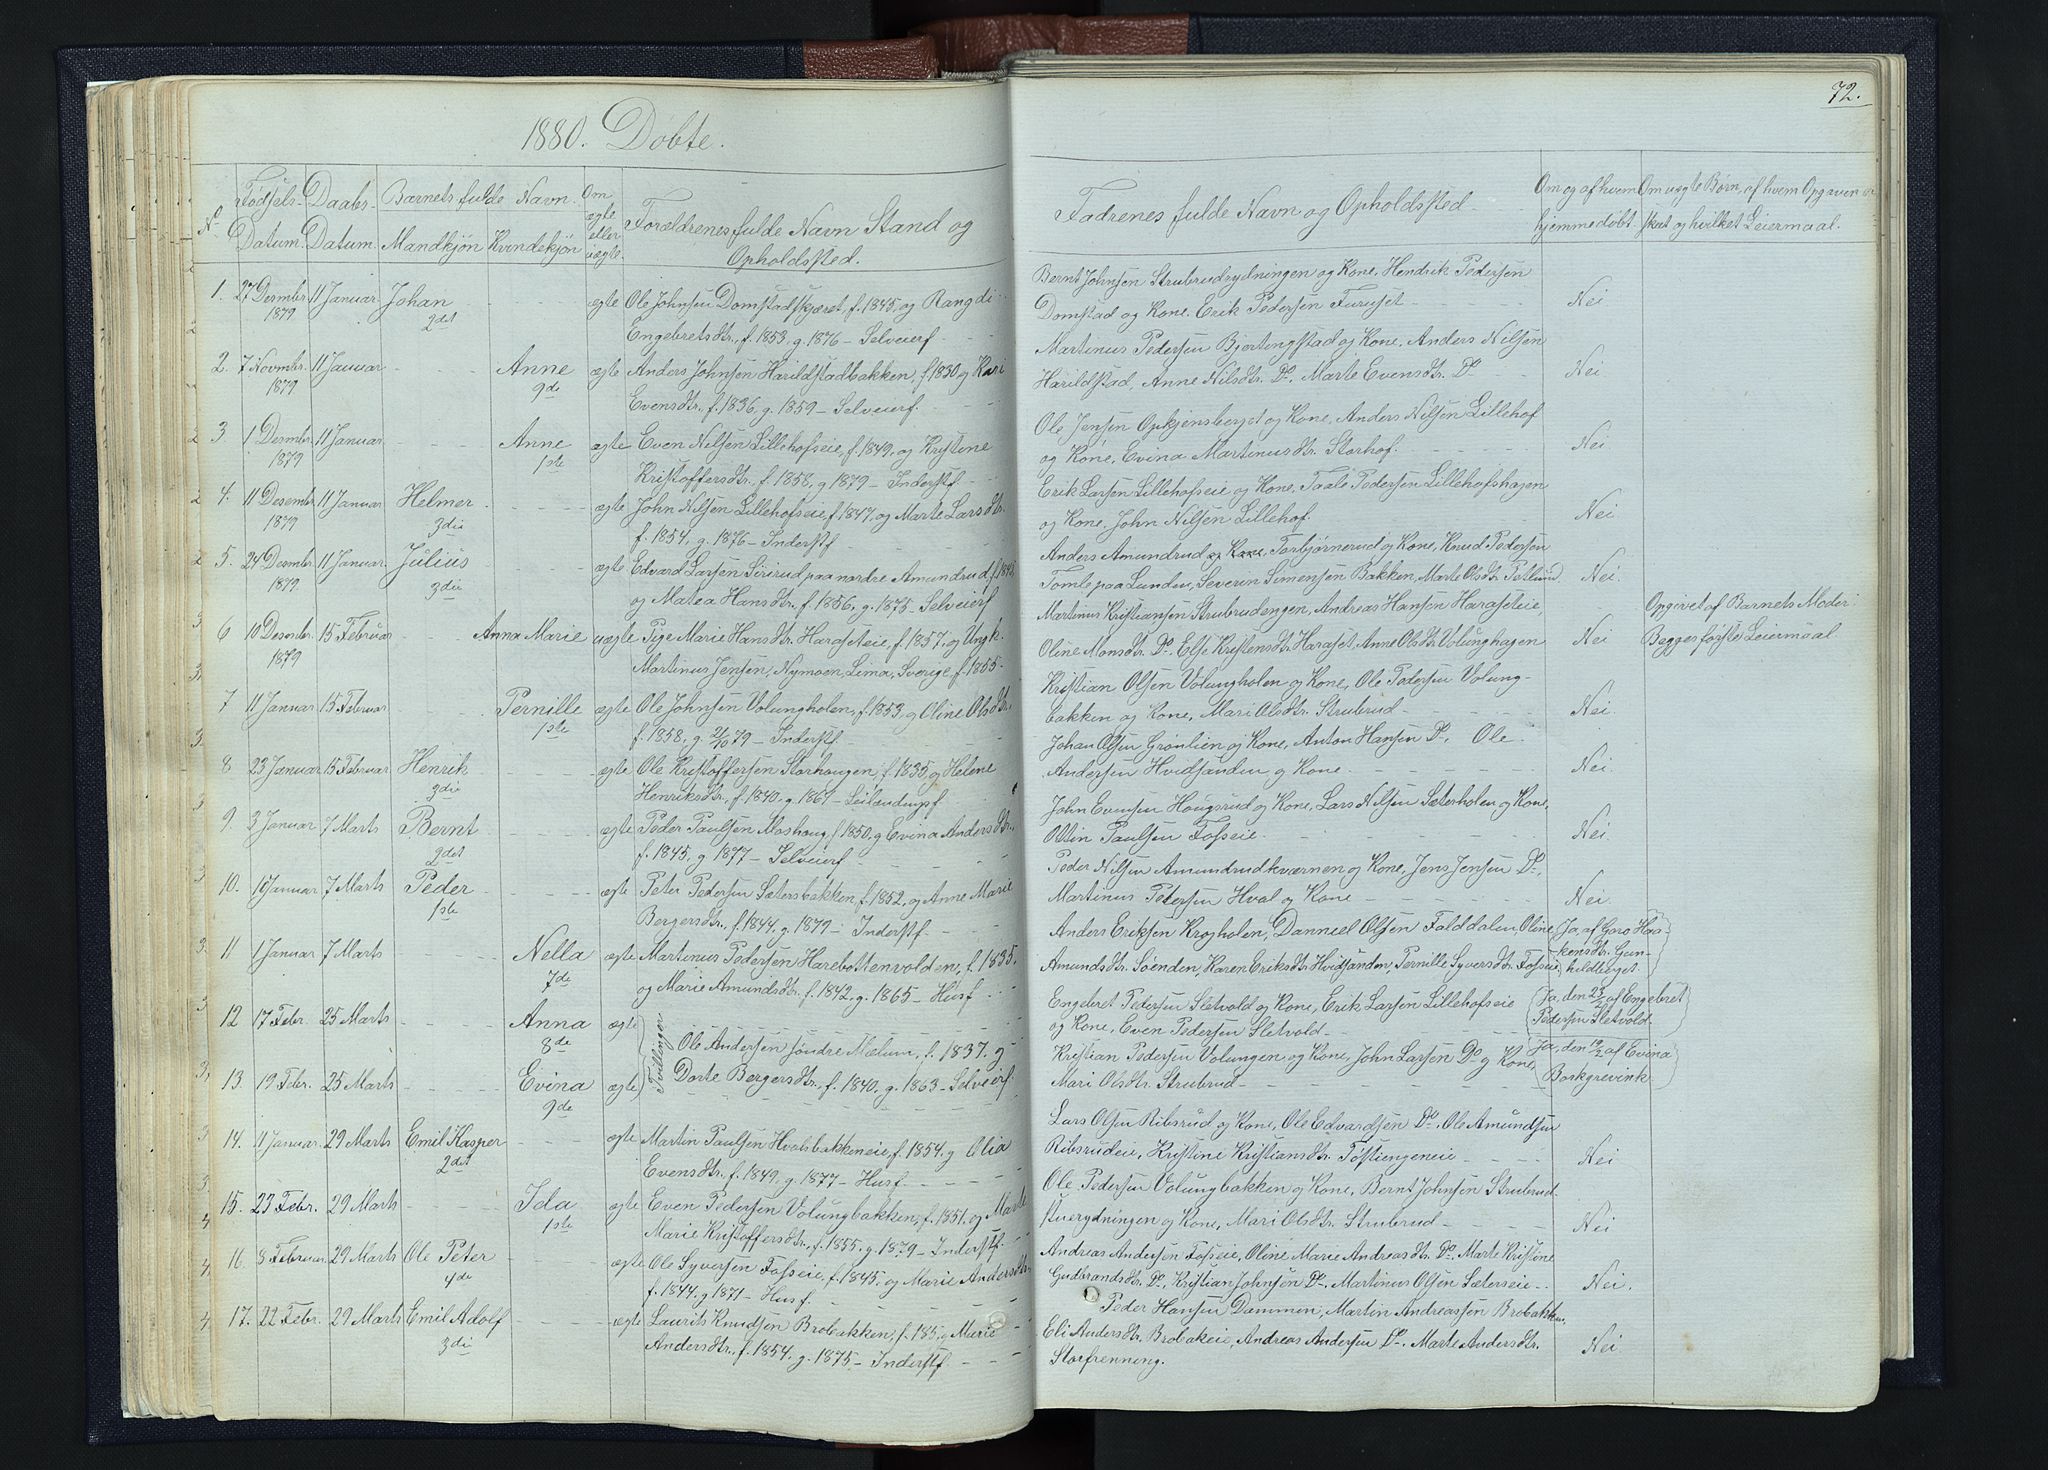 72.
1880. Døbte.
No. Fødsels- Datum. Daabs- Datum. Barnets fulde Navn. Mandkjøn Kvindekjøn Om ægte eller uægte. Forældrenes fulde Navn Stand og Opholdssted.
1. 27 Desmbr. 1879 11 Januar. Johan 2det ægte Ole Johnsen Domstadskjæret, f. 1845, og Rangdi
Engebretsdtr., f. 1853, g. 1876 – Selveierf.
2. 7 Novmbr. 1879 11 Januar Anne 9de ægte Anders Johnsen Harildstadbakken, f. 1830 og Kari
Evensdtr., f. 1836, g. 1859 – Selveierf.
3. 1 Desmbr. 1879 11 Januar Anne 1ste ægte Even Nilsen Lillehofseie, f. 1849, og Kristine
Kristoffersdtr. f. 1858, g 1879 – Inderstf
4. 11 Desembr. 1879 11 Januar Helmer 3die ægte John Nilsen Lillehofseie, f. 1847, og Marte Larsdtr.
f. 1854, g. 1876 – Inderstf
5. 24 Desmbr. 1879 11 Januar. Julius 3die ægte Edvard Larsen Sirirud paa nordre Amundrud f. 1848,
og Matea Hansdtr., f. 1856, g. 1875 – Selveierf
6 10 Desembr. 1879 15 Februar Anna Marie uægte Pige Marie Hansdtr. Haraseteie, f. 1857, og Ungk.
Martinus Jensen, Nymoen, Lima, Sverige, f. 1855.
7 11 Januar 15 Februar Pernille 1ste ægte Ole Johnsen Volungholen, f. 1853, g Oline Olsdtr.,
f. 1858, g. 21/10 79 – Inderstf.
8 23 Januar 15 Februar Henrik 3die ægte Ole Kristoffersen Storhaugen, f. 1835 og Helene
Henriksdtr., f. 1840, g. 1867 – Leilændingsf
9. 2 Januar 7 Marts Bernt 2det ægte Peder Paulsen Moshaug, f. 1850, g Evina Andersdtr.,
f. 1845, g 1877 – Selveierf
10. 10 Januar 7 Marts Peder 1ste ægte Peter Pedersen Sætersbakken, f. 1852, og Anne Marie
Bergersdtr., f. 1844, g. 1879 – Inderstf.
11 1 Januar 7 Marts Nella 7de ægte Martinus Pedersen Harebottenvolden, f. 1835.
og Marie Amundsdtr. f. 1842, g. 1865 – Husf
12 17 Febr. 25 Marts Anna 8de ægte Tvillinger Ole Andersen søndre Mælum, f. 1837. g
13. 19 Febr. 25 Marts Evina 9de ægte Dorte Bergersdtr., f. 1840, g. 1863 – Selveierf.
14. 11 Januar. 29 Marts Emil Kasper 2det ægte Martin Paulsen Hvalsbakkeneie, f. 1854. g Olia
Evensdtr., f. 1849, g. 1877 – Husf
15. 23 Febr. 29 Marts Ida 1ste ægte Even Pedersen Volungbakken, f. 1851, og Marte
Marie Kristoffersdtr., f. 1855. g. 1879 – Inderstf.
16. 8 Februar. 29 Marts Ole Peter 4de ægte Ole Syversen Fosseie, f. 1845. og Marie Andersdtr.
f. 1844. g 1871 – Husf.
17. 22 Febr. 29 Marts Emil Adolf 3die ægte Laurits Knudsen Brobakken, f. 185, g Marie
Andersdtr., f. 1854, g. 1875 – Inderstf
Fadrenes fulde Navn og Opholdssted. Om og af hvem hjemmedøbt. Om uægte Børn, af hvem Opgaven er skeet og hvilket Leiermaal.
Bernt Johnsen Strubrudrydningen og Kone, Hendrik Pedersen
Domstad og Kone. Erik Pedersen Furuset Nei
Martinus Pedersen Bjørtingstad og Kone, Anders Nilsen
Harildstad, Anne Nilsdtr. Do., Marte Evensdtr. Do Nei
Ole Jensen Opkjensberget og Kone, Anders Nilsen Lillehof
og Kone, Evina Martinusdtr. Storhof. Nei
Erik Larsen Lillehofseie og Kone, Paale Pedersen Lillehofshagen
og Kone, John Nilsen Lillehof. Nei
Anders Amundrud og Kone, Torbjørnerud og Kone, Knud Pedersen
Tomle paa Lunden, Severin Simensen Bakken, Marte Olsdtr Petlund. Nei.
Martinus Kristiansen Strubrudengen, Andreas Hansen Haraseteie, Opgivet af Barnets Moder.
Oline Monsdtr. Do. Else Kristensdtr. Haraset, Anne Olsdtr Volunghagen Nei Begges første Leiermaal.
Kristian Olsen Volungholen og Kone, Ole Pedersen Volung-
bakken og Kone, Mari Olsdtr. Strubrud Nei.
Johan Olsen Grønlien og Kone, Anton Hansen Do, Ole
Andersen Hvidsanden g Kone. Nei.
John Evensen Hougsrud og Kone, Lars Nilsen Sæterholen og Kone,
Otin Paulsen Fosseie. Nei.
Peder Nilsen Amundrudkværnen og Kone, Jens Jensen Do,
Martinus Pedersen Hval og Kone Nei.
Anders Eriksen Krogholen, Danneel Olsen Falddalen, Oline Ja, af Goro Haa-
Amundsdtr. Søenden, Karen Eriksdtr Hvidsanden, Pernille Syversdtr. Fosseie, kensdtr. Gun-
hildberget
Engebret Pedersen Sletvold og Kone, Erik Larsen Lillehofseie Ja, den 23/2 af Engebret
og Kone, Even Pedersen Sletvold Pedersen Sletvold
Kristian Pedersen Volungen og Kone, John Larsen Do g Kone, Ja, den 19/2 af Evina
Mari Olsdtr. Strubrud Borkgrevink
Lars Olsen Ribsrud og Kone, Ole Edvardsen Do. Ole Amundsen
Ribsrudeie, Kristine Kristiansdtr. Tøstiengeneie Nei
Ole Pedersen Volungbakken og Kone, Bernt Johnsen Strubrud
stuerydningen og Kone, Mari Olsdtr. Strubrud Nei
Andreas Andersen Fosseie, Oline Marie Andreasdtr. Do. Marte Kristine
Gudbrandsdtr. Do, Kristian Johnsen Do., Martinus Olsen Sæterseie Nei.
Peder Hansen Dammen, Martin Andreassen Brobakken,
Eli Andersdtr. Brobakeie, Andreas Andersen Do. Marte Andersdtr. Nei
Storfrenning.